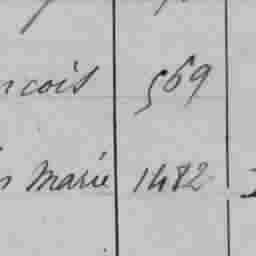 ncois 569
s Marie 1482